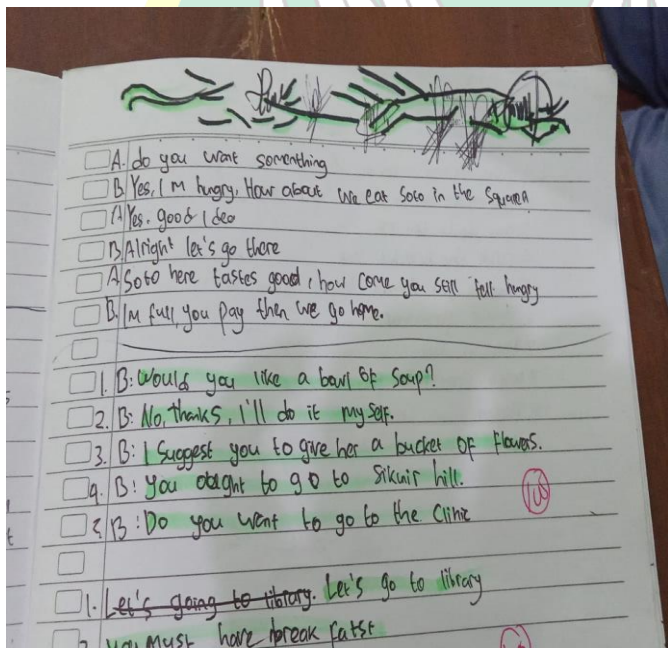 A. do you want somenthing
B Yes, I M hungry, How about we eat Soto in the Square
A Yes. good idea
B. Alright let's go there
A Soto here tastes good, how come you still fell hungry
B. I'm full, you pay then we go home.
1. B: Would you like a bowl OF Soup?
2. B: No, thanks, I'll do it my self.
3. B: I Suggest you to give her a bucket OF Flowers.
4. B: you ought to go to Sikuir hill.
5 B: Do you want to go to the Clinic
100
1. Let's going to library. Let's go to library
2. you must have break fatst